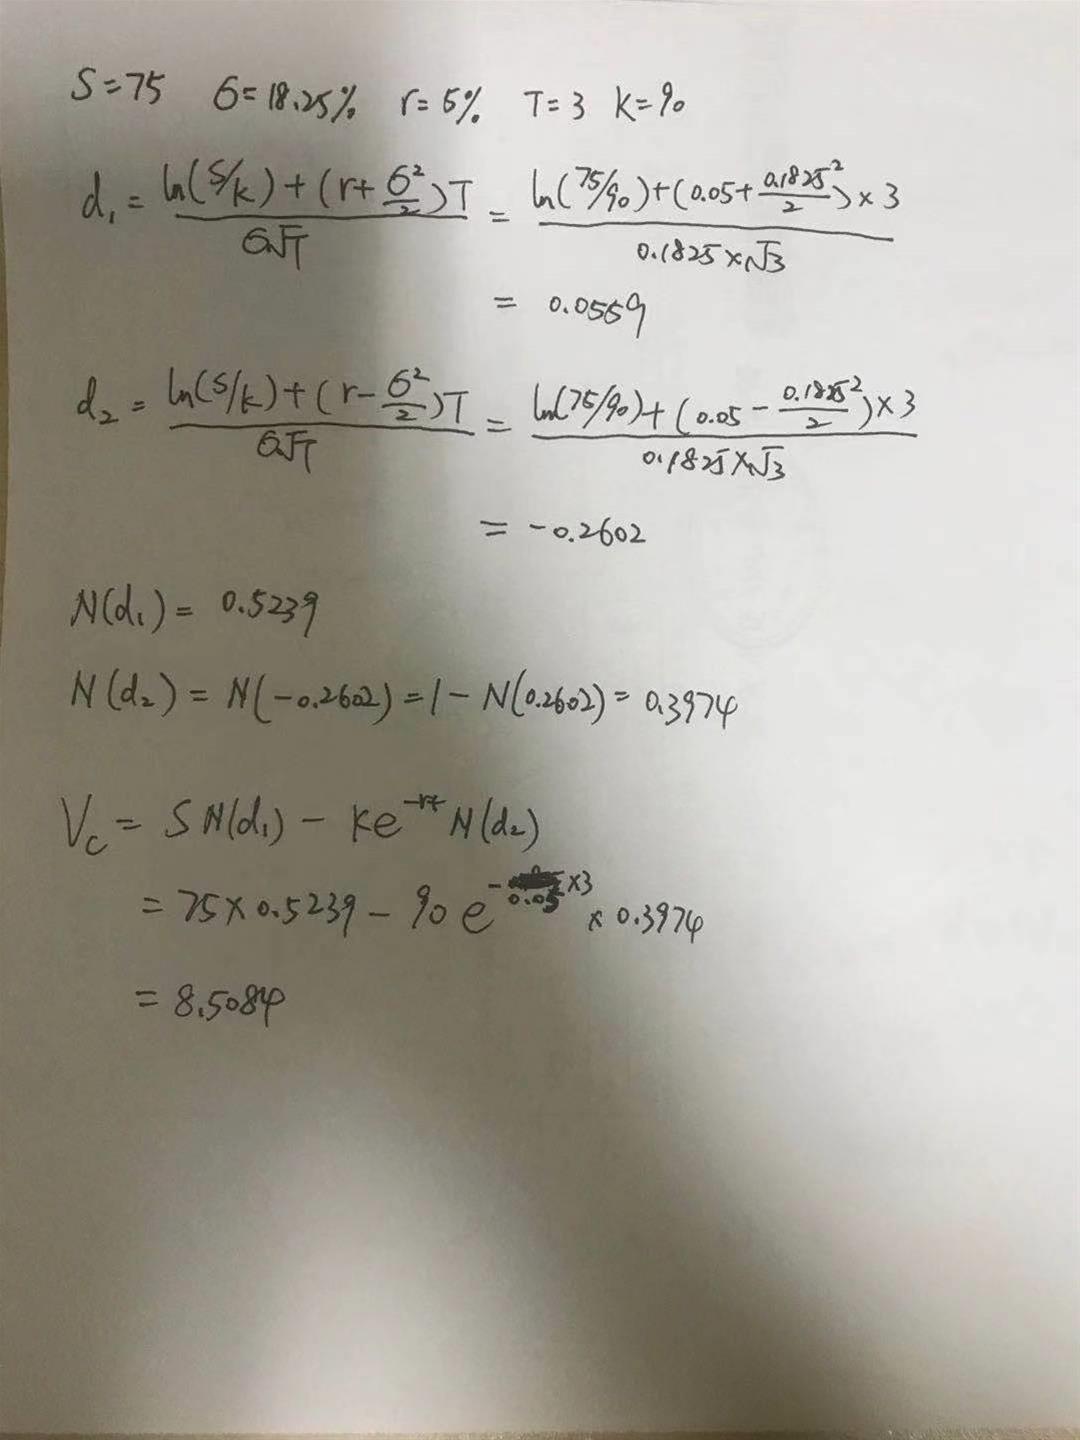 S=75 6=18.25% r=5% T=3 K=90
d₁ = (ln(S/k)+(r+6²/2)T)/(6√T) = (ln(75/90)+(0.05+0.1825²/2)×3)/(0.1825×√3)
= 0.0559
d₂ = (ln(S/k)+(r-6²/2)T)/(6√T) = (ln(75/90)+(0.05-0.1825²/2)×3)/(0.1825×√3)
= -0.2602
N(d₁) = 0.5239
N(d₂) = N(-0.2602) = 1 - N(0.2602) = 0.3974
Vc = S N(d₁) - ke^(-rt) N(d₂)
= 75×0.5239 - 90 e^(-0.05×3) × 0.3974
= 8.5084